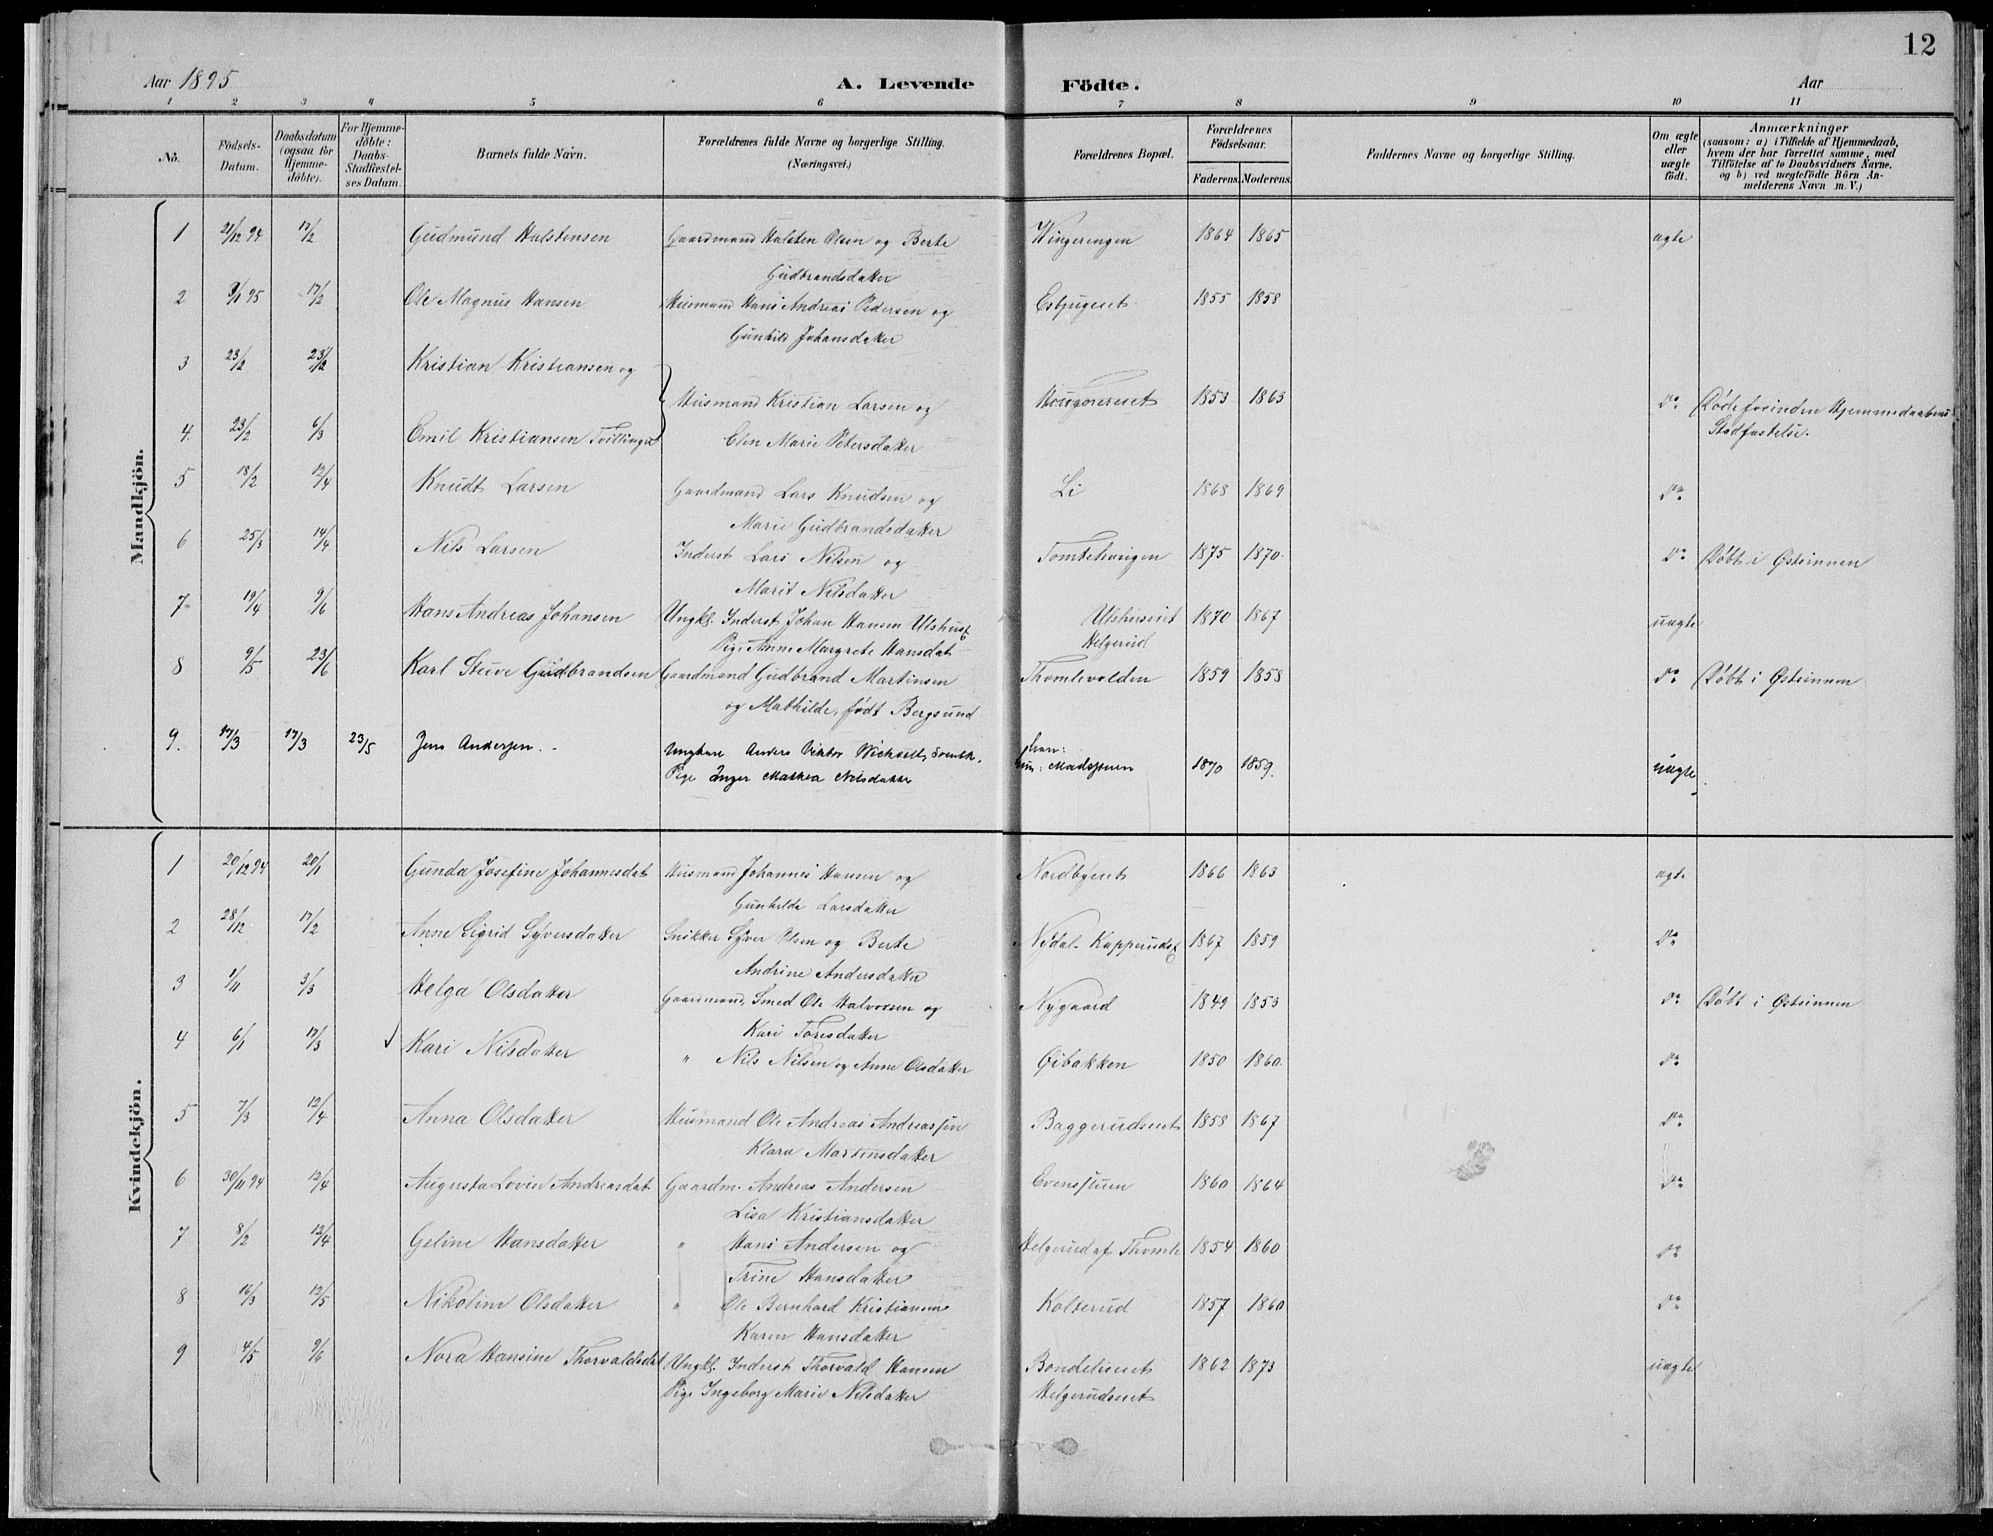 12
Aar 1895 A. Levende Födte. Aar
1 2 3 4 5 6 7 8 9 10 11
No. Födsels-Datum. Daabsdatum (ogsaa for Hjemme-döbte). For Hjemme-döbte: Daabs-Stadfæstel-ses Datum. Barnets fulde Navn. Forældrenes fulde Navne og borgerlige Stilling. (Næringsvei.) Forældrenes Bopæl. Forældrenes Födselsaar. Faderens. Moderens. Faddernes Navne og borgerlige Stilling. Om ægte eller uægte födt. Anmærkninger (saasom: a) i Tilfælde af Hjemmedaab, hvem der har forrettet samme, med Tilföielse af to Daabsvidners Navne, og b) ved uægtefödte Börn An-melderens Navn m. V.)
Mandkjön.
1 21/12 94 17/2 Gudmund Halstensen Gaardmand Halsten Olsen og Berte 1864 1865 ægte
Gudbrandsdatter
2 9/1 95 17/2 Ole Magnus Hansen Husmand Hans Andreas Pedersen og 1855 1858
Gunhild Johansdatter
3 23/2 23/2 Kristian Kristiansen og
Husmand Kristian Larsen og 1853 1863 do Døde forinden Hjemmedaabens
4. 23/2 6/3 Emil Kristiansen Tvillinger Elen Marie Petersdatter Stadfæstelse.
5 18/2 12/4 Knudt Larsen Gaardmand Lars Knudsen og Li 1868 1869 do
Marie Gudbrandsdatter
6 25/3 14/4 Nils Larsen Inderst Lars Nilsen og 1875 1870 do Døbt i Østsinnen
Marit Nilsdatter
7 19/4 9/6 Hans Andreas Johansen Ungkl. Inderst Johan Hansen 1870 1867 uægte
Pige Anne Margrete Hansdat Helgerud
8 9/5 23/6 Karl Steve Gudbrandsen Gaardmand Gudbrand Martinsen Thomlevolden 1859 1858 do Døbt i Østsinnen
og Mathilde, født Bergsund
9. 17/3 17/3 23/5 Jens Andersen Ungkar Anders Viktor han:
Pige Inger Mathea Nilsdatter hun: Madsjoren 1870 1859. uægte
Kvindekjön.
1 20/12 94 20/1 Gunda Josefine Johannesdat Husmand Johannes Hansen og Nordbyeiet 1866 1863 ægte
Gunhilde Larsdatter
2 28/12 17/2 Anne Sigrid Syversdatter Snikker Syver Olsen og Berte Nydal 1867 1859 do
Andrine Andersdatter
3 1/11 3/3 Helga Olsdatter Gaardmand, Smed Ole Halvorsen og Nygaard 1849 1853 do Døbt i Østsinnen
Kari Toresdatter
4 6/1 17/3 Kari Nilsdatter " Nils Nilsen og Anne Olsdatter Øibakken 1850 1860 do
5 7/3 12/4 Anna Olsdatter Husmand Ole Andreas Andreassen Baggerudseiet 1858 1867 do
Klara Martinsdatter
6 30/11 94 12/4 Augusta Lovise Andreasdat Gaardm. Andreas Andersen Evensjuen 1860 1864 do
Lisa Kristiansdatter
7 8/2 12/4 Geline Hansdatter " Hans Andersen og Helgerud af Thomle 1854 1860 do
Trine Hansdatter
8 16/3 12/5 Nikoline Olsdatter " Ole Bernhard Kristiansen Kolterud 1857 1860 do
Karen Hansdatter
9 4/5 9/6 Nora Hansine Thorvaldsdat Ungkl. Inderst Thorvald Hansen Bondelieiet 1862 1873 uægte
Pige Ingeborg Marie Nilsdatter Helgerudseiet